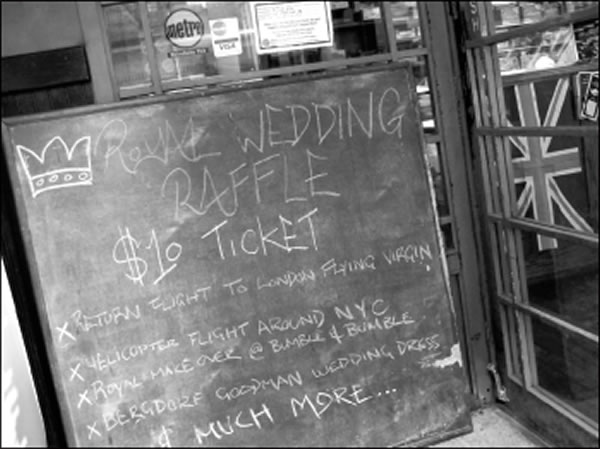 metro
VISA
ROYAL WEDDING
RAFFLE
$10 TICKET
X RETURN FLIGHT TO LONDON FLYING VIRGIN
X HELICOPTER FLIGHT AROUND NYC
X ROYAL MAKEOVER @ BUMBLE & BUMBLE
X BERGDORF GOODMAN WEDDING DRESS
& MUCH MORE...